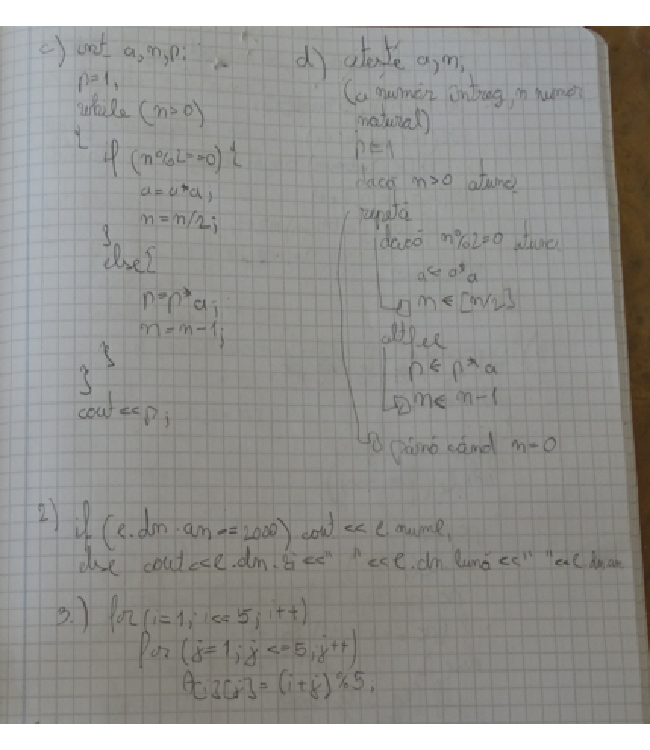 c) int a,n,p;
p=1;
while (n>0)
{
if (n%2==0) {
a=a*a;
n=n/2;
}
else{
p=p*a;
n=n-1;
}
}
cout<<p;
d) citește a,n,
(a număr întreg, n număr
natural)
p←1
dacă n>0 atunci
repetă
dacă n%2=0 atunci
a←a*a
n←[n/2]
altfel
p←p*a
n←n-1
până când n=0
2) if (e.dn.an==2000) cout<<e.nume;
else cout<<e.dn.zi<<" "<<e.dn.luna<<" "<<e.dn.an
3.) for(i=1; i<=5; i++)
for(j=1; j<=5; j++)
A[i][j]=(i+j)%5;